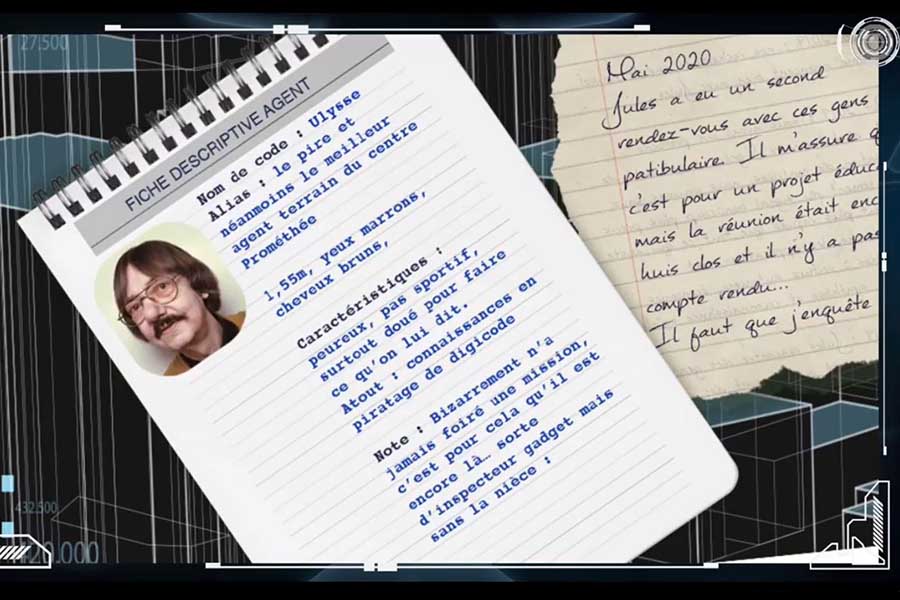 27.500
FICHE DESCRIPTIVE AGENT
Nom de code : Ulysse
Alias : le pire et
néanmoins le meilleur
agent terrain du centre
Prométhée
1,55m, yeux marrons,
cheveux bruns,
Caractéristiques :
peureux, pas sportif,
surtout doué pour faire
ce qu'on lui dit.
Atout : connaissances en
piratage de digicode
Note : Bizarrement n'a
jamais foiré une mission,
c'est pour cela qu'il est
encore là… sorte
d'inspecteur gadget mais
sans la nièce :
Mai 2020
Jules a eu un second
rendez-vous avec ces gens
patibulaire. Il m'assure q
c'est pour un projet éduc
mais la réunion était enc
huis clos et il n'y a pas
compte rendu...
Il faut que j'enquête
432.500
420.000